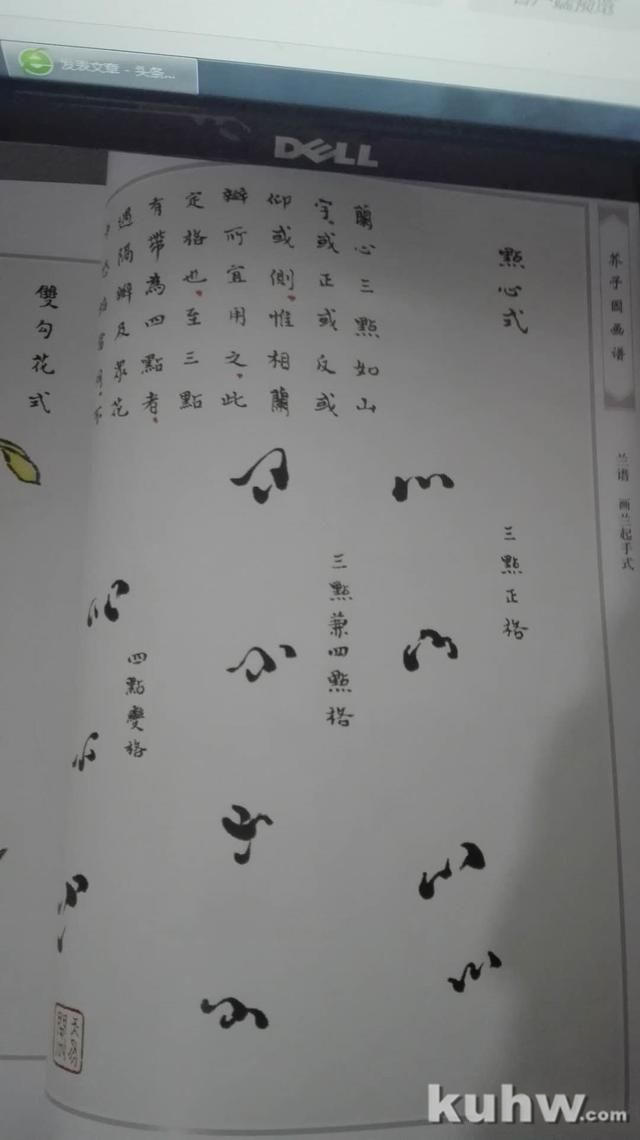 客户端预览
发表文章 - 头条...
DELL
芥子园画谱
兰谱 画兰起手式
點心式
蘭心三點如山
字或正或反或
仰或側惟相蘭
瓣所宜用之此
定格也至三點
有帶為四點者
遇隔瓣及眾花
三點正格
三點兼四點格
四點變格
雙勾花式
kuhw.com